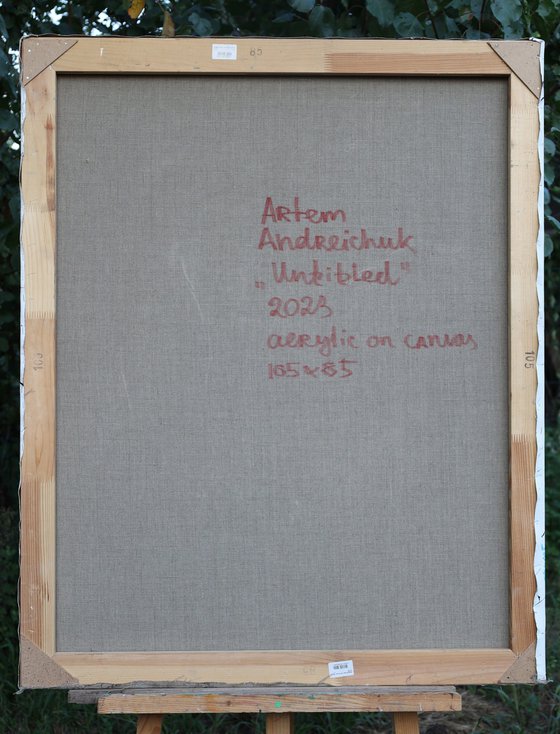 85
Artem
Andreichuk
„Untitled"
2023
acrylic on canvas
105x85
105
105